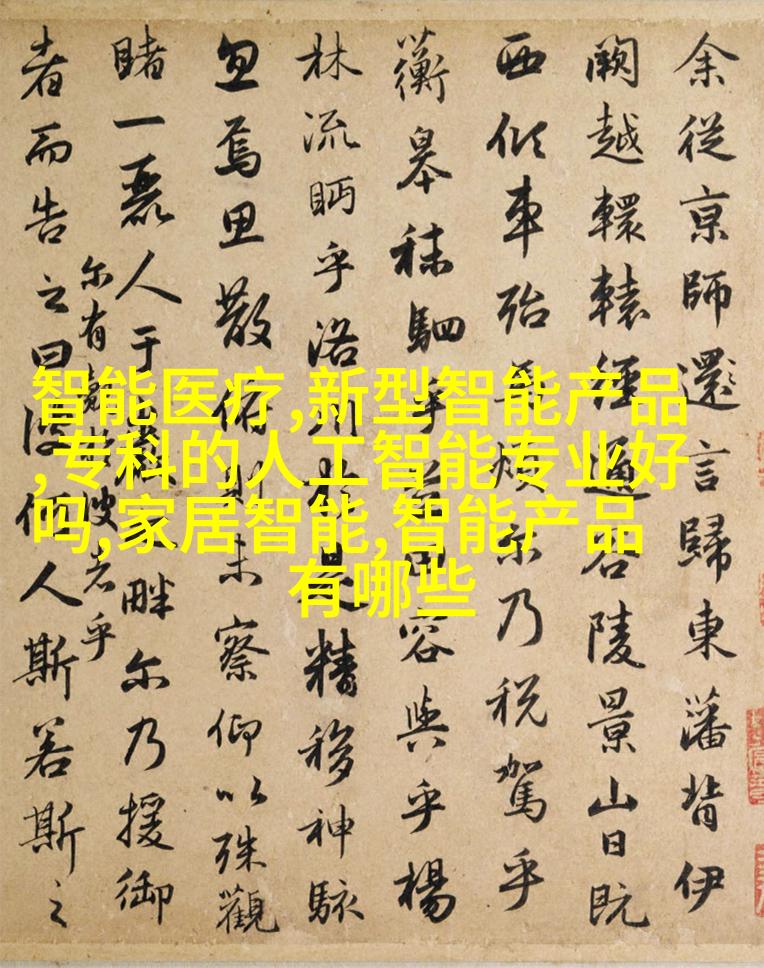 余從京師還言歸東藩背伊
闕越轘轅經通谷陵景山日既
西傾車殆馬煩尓乃税駕乎
蘅皋秣駟乎芝田容與乎楊
林流眄乎洛川於是精移神駭
忽焉思散俯則未察仰以殊觀
睹一麗人于巖之畔尓乃援御
尔有覿於彼者乎
者而告之曰彼何人斯若斯之
智能医疗,新型智能产品
,专科的人工智能专业好
吗,家居智能,智能产品
有哪些